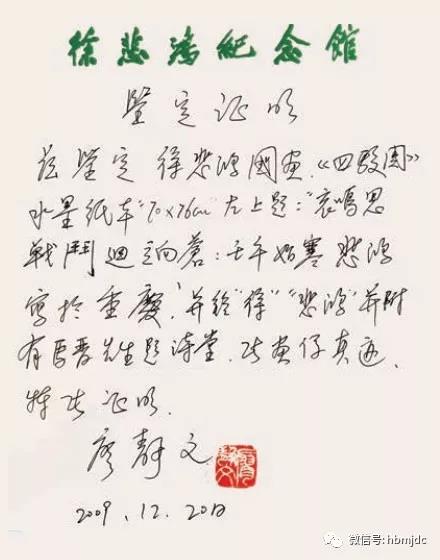 徐悲鸿纪念馆
鉴定证明
兹鉴定 徐悲鸿國画.《四骏图》
水墨纸本"70×76cm"左上题:"哀鸣思
戰鬥迴立向蒼:壬午始寒 悲鸿
寫於重慶"并铃"徐""悲鸿"并附
有馬晋先生题诗堂.此画仔真迹.
特此证明.
廖静文
2009.12.20日
微信号:hbmjdc